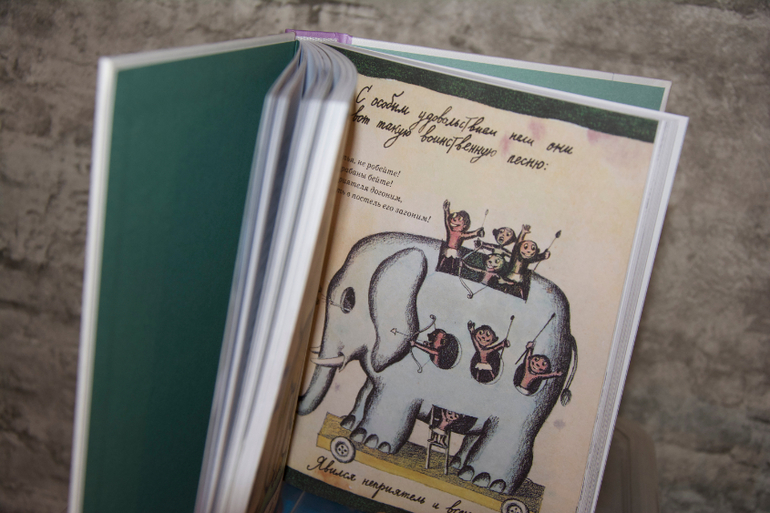 С особым удовольствием пели они
вот такую воинственную песню:
не робейте!
бейте!
догоним,
в постель его загоним!
Явился неприятель и